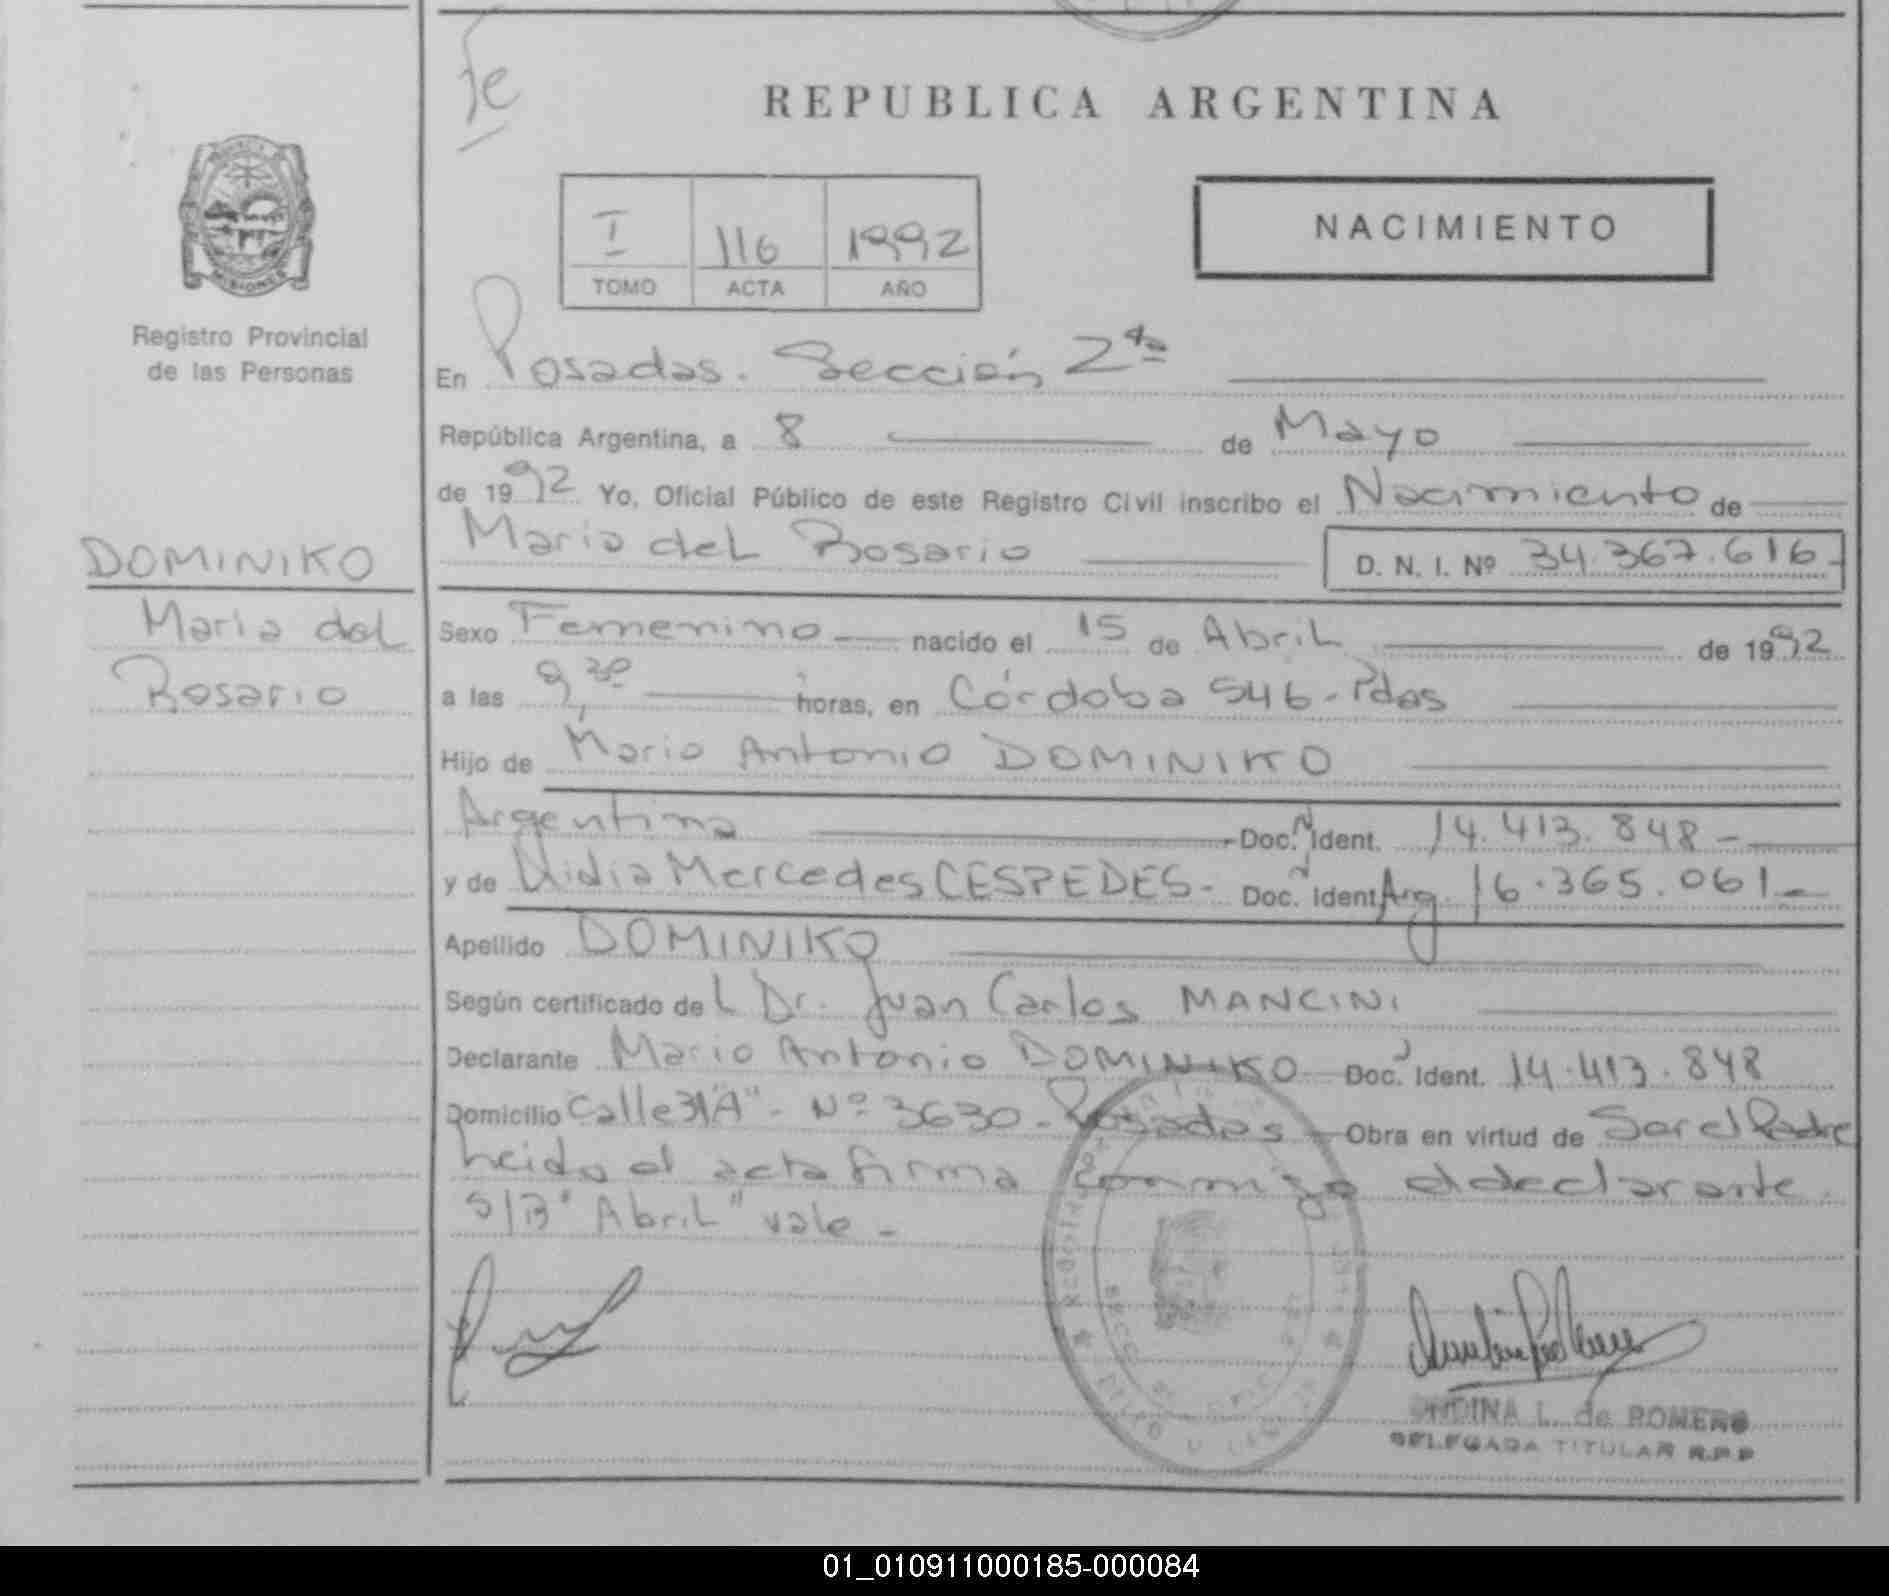 fe
REPUBLICA ARGENTINA
I 116 1992
TOMO ACTA AÑO
NACIMIENTO
MISIONES
Registro Provincial
de las Personas
En Posadas. Sección 2da
República Argentina, a 8 de Mayo
de 1992 Yo, Oficial Público de este Registro Civil inscribo el Nacimiento de
Maria del Rosario D. N. I. Nº 34.367.616-
DOMINIKO
Maria del
Rosario
Sexo Femenino nacido el 15 de Abril de 1992
a las 9,30 horas, en Córdoba 546-Pdas
Hijo de Mario Antonio DOMINIKO
Argentina Doc. Ident. 14.413.848-
y de Nidia Mercedes CESPEDES- Doc. Ident. Arg. 16.365.061-
Apellido DOMINIKO
Según certificado del Dr. Juan Carlos MANCINI
Declarante Mario Antonio DOMINIKO Doc. Ident. 14.413.848
Domicilio Calle 31"A"- Nº 3630-Posadas Obra en virtud de Ser el Padre
Leida el acta firma conmigo el declarante.
S/B "Abril" vale-
ONDINA L. de ROMERO
DELEGADA TITULAR R.P.P
01_010911000185-000084